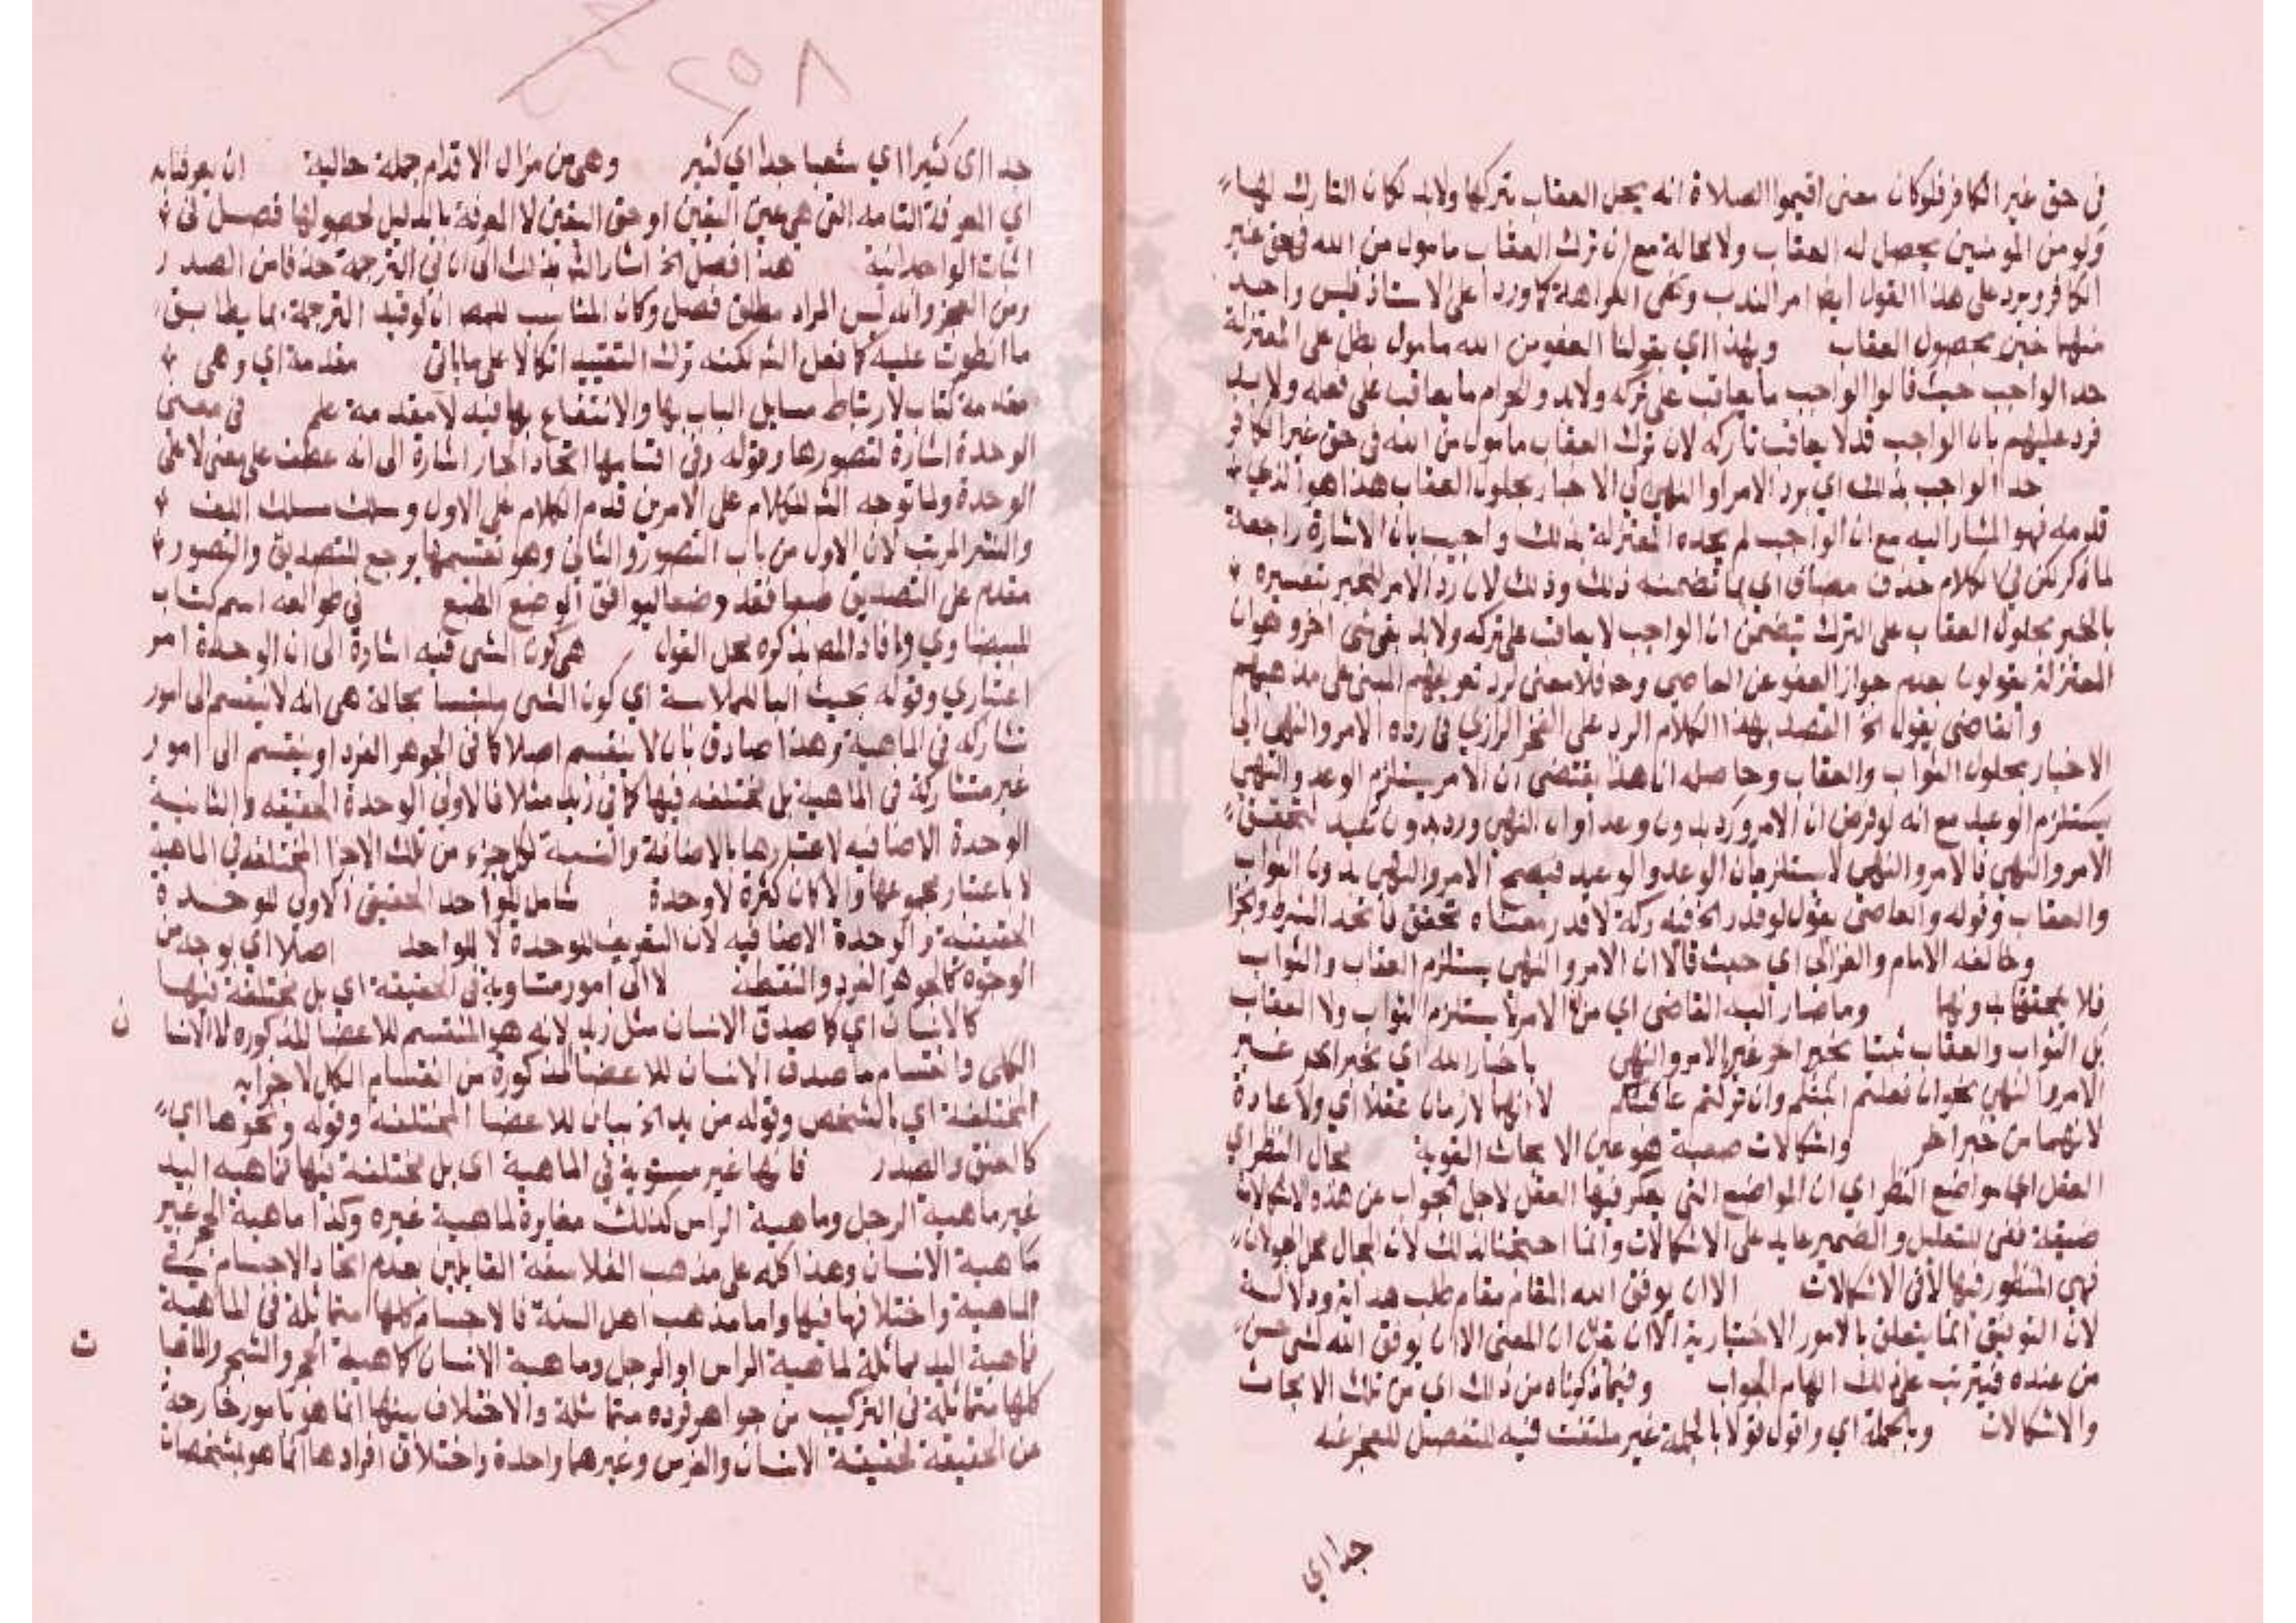 في حق غير الكافر فلو كان معنى اقيموا الصلاة انه يحل العقاب بتركها ولابد لكان التارك لها
ولو من المومنين يحصل له العقاب ولا محالة مع ان ترك العقاب مامول من الله في حق غير
الكافر ويرد على هذا القول ايضا امر الندب ونهي الكراهة كما ورد على الاستاذ فليس واحد
منهما خبر بحصول العقاب وبهذا اي بقولنا العفو من الله مامول بطل على المعتزلة
حد الواجب حيث قالوا الواجب ما يعاقب على تركه ولابد والحرام ما يعاقب على فعله ولابد
فرد عليهم بان الواجب قد لا يعاقب تاركه لان ترك العقاب مامول من الله في حق غير الكافر
حد الواجب بذلك اي برد الامر والنهي الي الاخبار بحلول العقاب هذا هو الذي
قدمه فهو المشار اليه مع ان الواجب لم يحده المعتزلة بذلك واجيب بان الاشارة راجعة
لما ذكر لكن في الكلام حذف مضاف اي بما تضمنه ذلك وذلك لان رد الامر للخبر تفسيره
بالخبر بحلول العقاب على الترك يتضمن ان الواجب لا يعاقب على تركه ولابد بقي شي اخر وهو ان
المعتزلة يقولون بعدم جواز العفو عن العاصي وح فلا معنى لرد تعريفهم المبني على مذهبهم
والقاضي يقول الخ القصد بهذا الكلام الرد على الفخر الرازي في رده الامر والنهي الي
الاخبار بحلول الثواب والعقاب وحاصله ان هذا يقتضي ان الامر يستلزم الوعد والنهي
يستلزم الوعيد مع انه لو فرض ان الامر ورد بدون وعد او ان النهي ورد بدون وعيد لتحقق
الامر والنهي فالامر والنهي لا يستلزمان الوعد والوعيد فيصح الامر والنهي بدون الثواب
والعقاب وقوله والقاضي يقول لو قدر الخ فيه ركة
وخالفه الامام والغزالي اي حيث قالا ان الامر والنهي يستلزم العقاب والثواب
فلا يتحققا بدونهما وما صار اليه القاضي اي من ان الامر لا يستلزم الثواب ولا العقاب
بل الثواب والعقاب ثبتا بخبر اخر غير الامر والنهي باخبار الله اي بخبر اخر غير
الامر والنهي نحو ان فعلتم اثبتكم وان تركتم عاقبتكم لا انهما لازمان عقلا اي ولا عادة
لانهما من خبر اخر واشكالات صعبة هو عين الابحاث القوية مجال النظر اي
العقل اي مواضع النظر اي ان المواضع التي يفكر فيها العقل لاجل الجواب عن هذه الاشكالات
ضيقة ففي للتعليل والضمير عايد على الاشكالات وانما احتجنا لذلك لان المجال محل الجولان
فهي المنظور فيها لا في الاشكالات الا ان يوفق الله المقام مقام طلب هداية ودلالة
لان التوفيق انما يتعلق بالامور الاختيارية الا ان يقال ان المعنى الا ان يوفق الله لشي حسن
من عنده فيترتب على ذلك الهام الجواب وفيما ذكرناه من ذلك اي من تلك الابحاث
والاشكالات وبالجملة اي واقول قولا بالجملة غير ملتفت فيه للتفصيل للعجز عنه
جدا اي
٢٥٨
جدا اي كثيرا اي شعبا جدا اي كثير وهي من مزال الاقدام جملة حالية ان يعرفنا به
اي المعرفة التامة التي هي عين اليقين او حق اليقين لا المعرفة بالدليل لحصولها فصل في
اثبات الواحدانية هذا فصل الخ اشار الش بذلك الى ان في الترجمة حذفا من الصدر
ومن العجز وانه ليس المراد مطلق فصل وكان المناسب للمص ان لو قيد الترجمة بما يطابق
ما انطوت عليه كما فعل الش لكنه ترك التقييد اتكالا على ما ياتي مقدمة اي وهي
مقدمة كتاب لارتباط مسايل الباب بها والانتفاع بها فيه لا مقدمة علم في معنى
الوحدة اشارة لتصورها وقوله وفي اقسامها اتحاد الجار اشارة الى انه عطف على معنى لا على
الوحدة ولما توجه الش للكلام على الامرين قدم الكلام على الاول وسلك مسلك اللف
والنشر المرتب لان الاول من باب التصور والثاني وهو تقسيمها يرجع للتصديق والتصور
مقدم على التصديق طبعا فقدم وضعا ليوافق الوضع الطبع في طوالعه اسم كتاب
للبيضاوي وافاد المص بذكره محل القول هي كون الشي فيه اشارة الى ان الوحدة امر
اعتباري وقوله بحيث البا للملابسة اي كون الشي ملتبسا بحالة هي انه لا ينقسم الى امور
تشاركه في الماهية وهذا صادق بان لا ينقسم اصلا كما في الجوهر الفرد او ينقسم الى امور
غير متشاركة في الماهية بل مختلفة فيها كما في زيد مثلا فالاولى الوحدة الحقيقة والثانية
الوحدة الاضافيه لاعتبارها بالاضافة والنسبة لكل جزء من تلك الاجزا المختلفة في الماهية
لا باعتبار مجموعها والا كان كثرة لا وحدة شامل للواحد الحقيقي الاولى للوحدة
الحقيقية والوحدة الاضافيه لان التعريف للوحدة لا للواحد اصلا اي بوجه من
الوجوه كالجوهر الفرد والنقطة لا الى امور متساوية في الحقيقة اي بل مختلفة فيها
كالانسان اي كما صدق الانسان مثل زيد لانه هو المنقسم للاعضا المذكوره لا الانسا
ن
الكلي وانقسام ما صدق الانسان للاعضا المذكورة من انقسام الكل لاجزايه
المختلفة اي بالشخص وقوله من يد الخ بيان للاعضا المختلفة وقوله ونحوها اي
كالعنق والصدر فانها غير مستوية في الماهية اي بل مختلفة فيها فماهية اليد
غير ماهية الرجل وماهية الراس كذلك مغايرة لماهية غيره وكذا ماهية الحجر غير
ماهية الانسان وهذا كله على مذهب الفلاسفة القايلين بعدم اتحاد الاجسام في
الماهية واختلافها فيها واما مذهب اهل السنة فالاجسام كلها متماثلة في الماهية
فماهية اليد مماثلة لماهية الراس او الرجل وماهية الانسان كماهية الحجر والشجر والماهيا
ت
كلها متماثلة في التركيب من جواهر فرده متماثلة والاختلاف بينها انما هو بامور خارجة
عن الحقيقة لحقيقة الانسان والفرس وغيرهما واحدة واختلاف افرادها انما هو بمشخصات